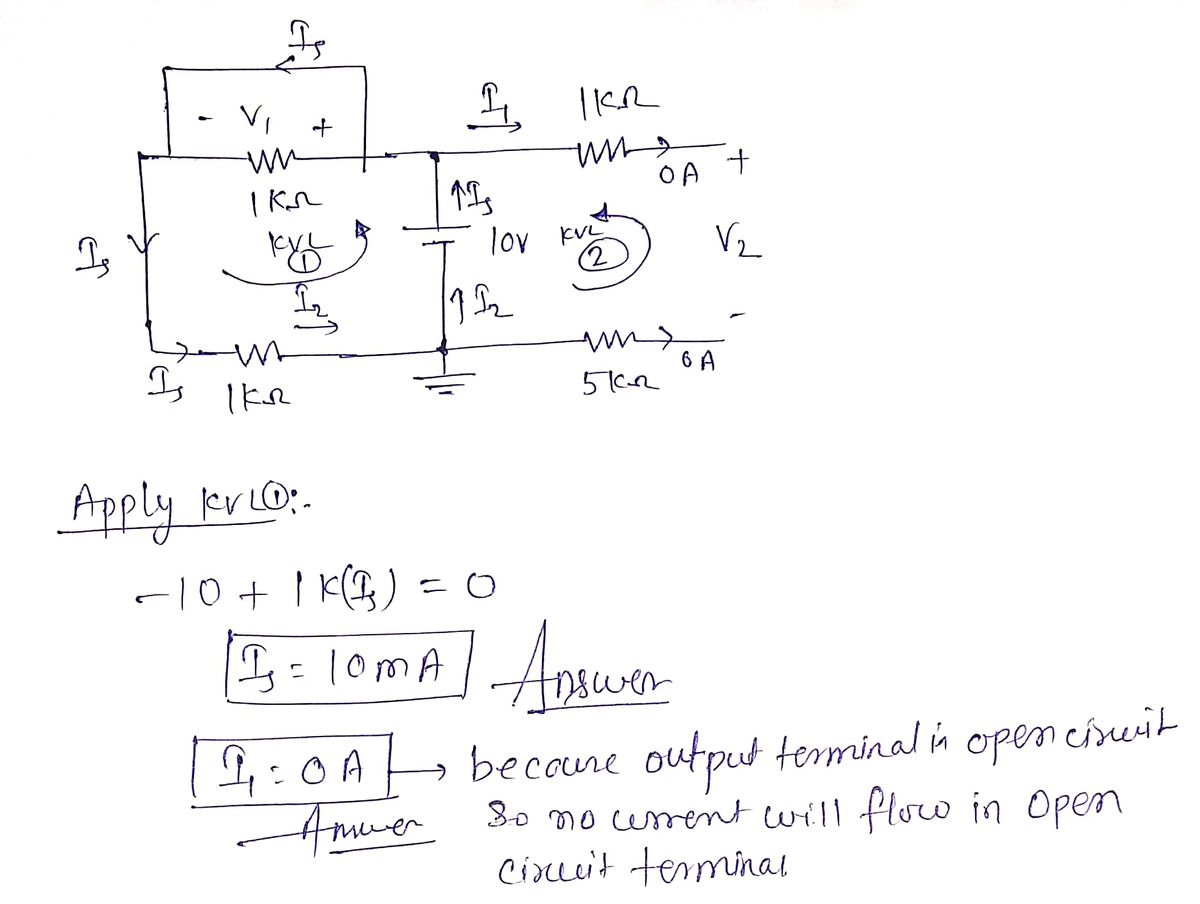 Is
- V1 +
1KΩ
I1
1KΩ
0A
+
Is
KVL
①
↑Is
10V
KVL
②
V2
I2
↑I2
-
Is
1KΩ
5KΩ
0A
Apply KVL①:-
-10 + 1K(Is) = 0
Is = 10mA Answer
I1 = 0A → because output terminal is open circuit
Answer So no current will flow in open
circuit terminal